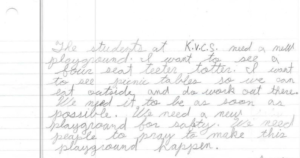 The students at K.V.C.S. need a new
playground. I want to see a
four seat teeter totter. I want
to see picnic tables so we can
eat outside and do work out there.
We need it to be as soon as
possible. We need a new
playground for safty. We need
people to pray to make this
playground happen.